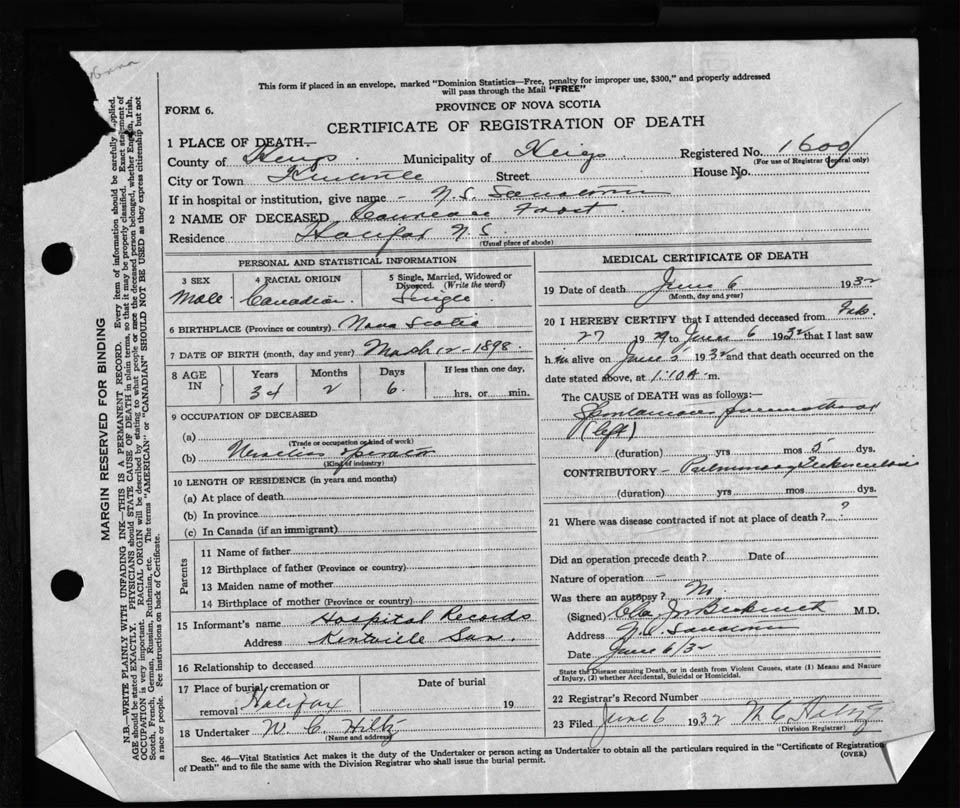 This form if placed in an envelope, marked "Dominion Statistics—Free, penalty for improper use, $300," and properly addressed
will pass through the Mail "FREE"
FORM 6.
PROVINCE OF NOVA SCOTIA
CERTIFICATE OF REGISTRATION OF DEATH
1 PLACE OF DEATH—
County of Kings Municipality of Kings Registered No. 1609
(For use of Registrar General only)
City or Town Kentville Street House No.
If in hospital or institution, give name - N.S. Sanatorium
2 NAME OF DECEASED Laurence Frost
Residence Halifax N.S.
(Usual place of abode)
PERSONAL AND STATISTICAL INFORMATION
3 SEX 4 RACIAL ORIGIN 5 Single, Married, Widowed or
Divorced. (Write the word)
Male. Canadian. Single.
6 BIRTHPLACE (Province or country) Nova Scotia
7 DATE OF BIRTH (month, day and year) March 12 - 1898.
8 AGE IN Years Months Days If less than one day,
34 2 6 hrs. or min.
9 OCCUPATION OF DECEASED
(a)
(Trade or occupation or kind of work)
(b) Wireless operator
(Kind of industry)
10 LENGTH OF RESIDENCE (in years and months)
(a) At place of death
(b) In province
(c) In Canada (if an immigrant)
Parents
11 Name of father
12 Birthplace of father (Province or country)
13 Maiden name of mother
14 Birthplace of mother (Province or country)
15 Informant's name Hospital Records
Address Kentville San.
16 Relationship to deceased
17 Place of burial, cremation or Date of burial
removal Halifax 19
18 Undertaker W. C. Hiltz
(Name and address)
MEDICAL CERTIFICATE OF DEATH
19 Date of death June 6 1932
(Month, day and year)
20 I HEREBY CERTIFY that I attended deceased from Feb.
27 1929 to June 6 1932 that I last saw
him alive on June 5 1932 and that death occurred on the
date stated above, at 1:10 A. m.
The CAUSE of DEATH was as follows:—
Spontaneous pneumothorax
(left)
(duration) yrs mos 5 dys.
CONTRIBUTORY - Pulmonary Tuberculosis
(duration) yrs. mos. dys.
21 Where was disease contracted if not at place of death? ?
Did an operation precede death? Date of
Nature of operation -
Was there an autopsy? No
(Signed) M.D.
Address N.S. Sanatorium
Date June 6/32
State the Disease causing Death, or in death from Violent Causes, state (1) Means and Nature
of Injury, (2) whether Accidental, Suicidal or Homicidal.
22 Registrar's Record Number
23 Filed June 6 1932 W C Hiltz
(Division Registrar)
Sec. 46—Vital Statistics Act makes it the duty of the Undertaker or person acting as Undertaker to obtain all the particulars required in the "Certificate of Registration
of Death" and to file the same with the Division Registrar who shall issue the burial permit.
(OVER)
MARGIN RESERVED FOR BINDING
N.B.—WRITE PLAINLY WITH UNFADING INK—THIS IS A PERMANENT RECORD. Every item of information should be carefully supplied.
AGE should be stated EXACTLY. PHYSICIANS should STATE CAUSE OF DEATH in plain terms, so that it may be properly classified. Exact statement of
OCCUPATION is very important. RACIAL ORIGIN will be described by stating to what people or race the deceased person belonged, whether English, Irish,
Scotch, French, German, Russian, Ruthenian, etc. The terms "AMERICAN" or "CANADIAN" SHOULD NOT BE USED as they express citizenship but not
a race or people. See instructions on back of Certificate.